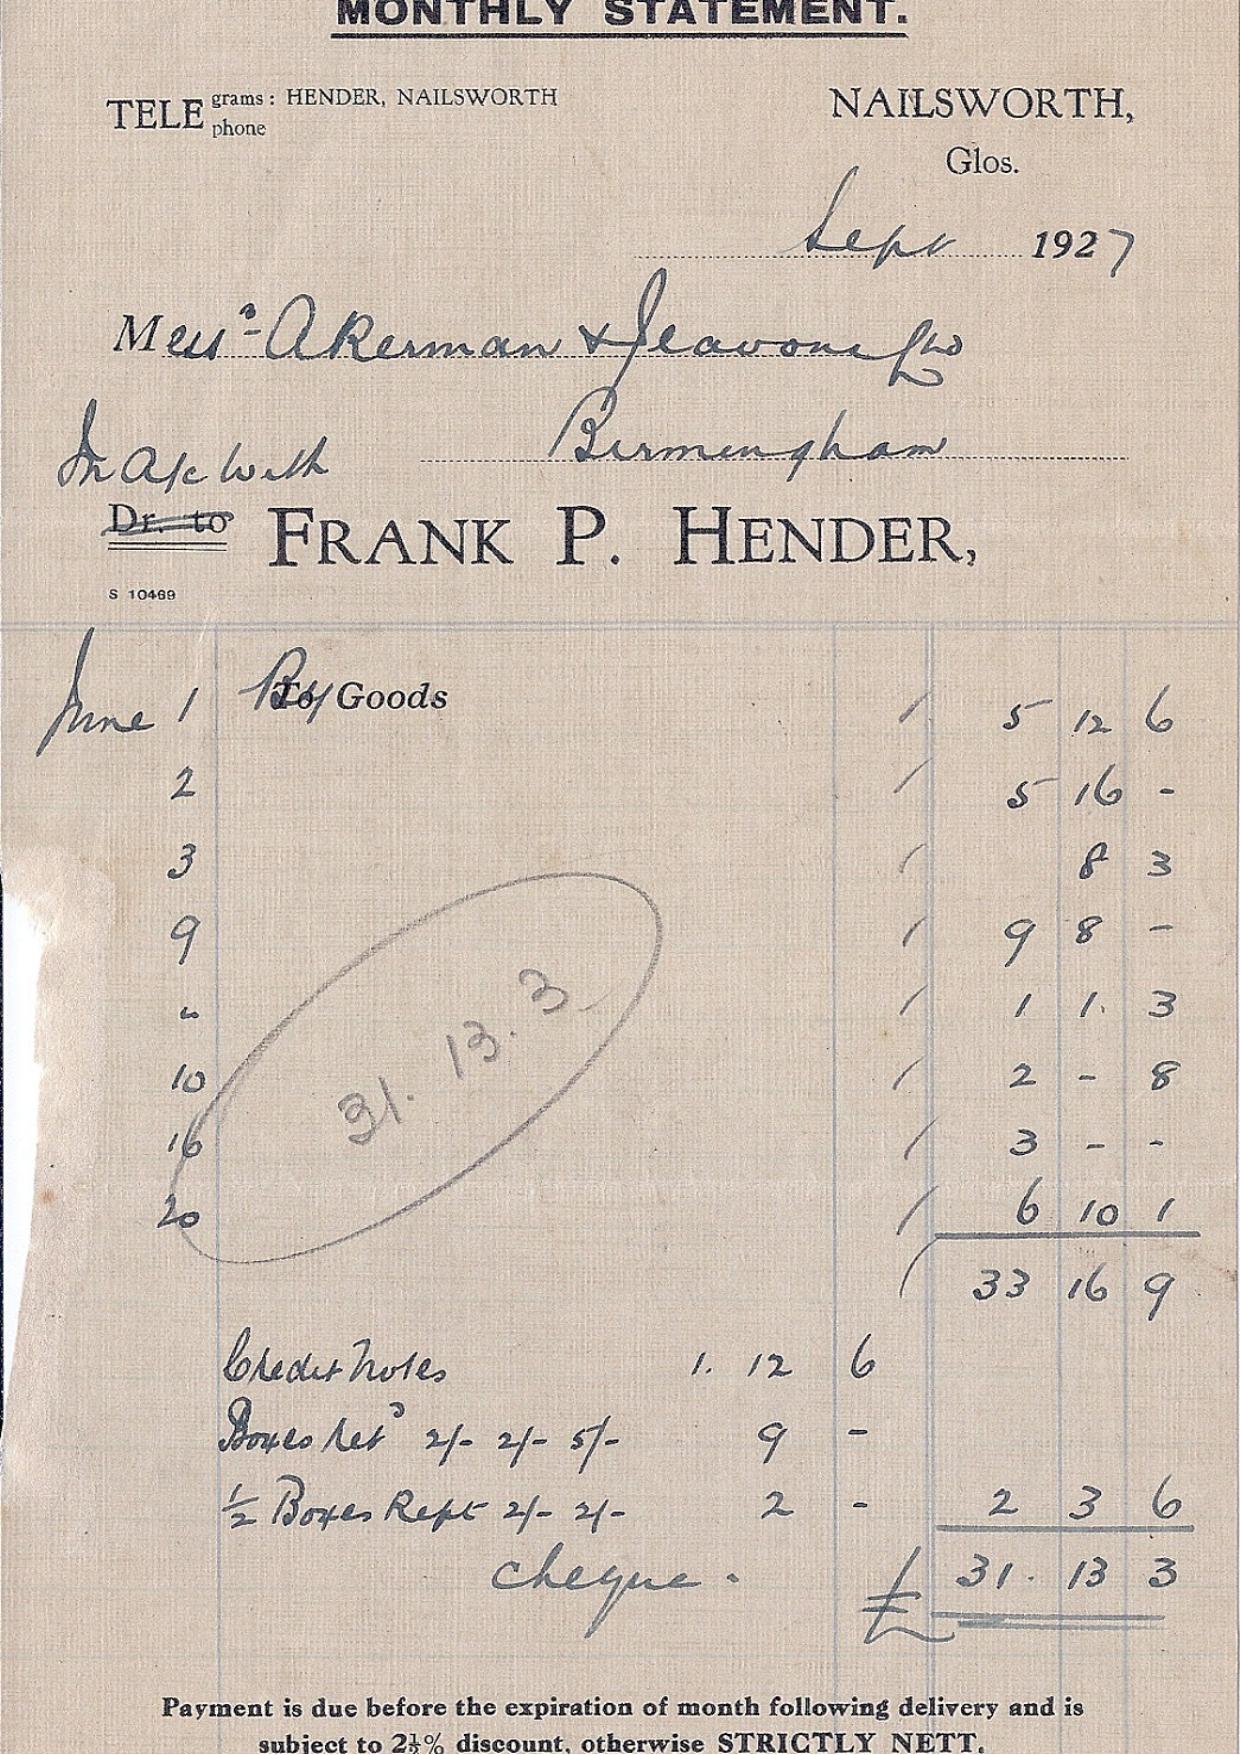 MONTHLY STATEMENT.
TELE grams: HENDER, NAILSWORTH
phone
NAILSWORTH,
Glos.
Sept 1927
Messrs Akerman & Jeavons Ltd
Birmingham
In A/c With
Dr. to FRANK P. HENDER,
S 10469
June 1 By To Goods / 5 12 6
2 / 5 16 -
3 / 8 3
9 / 9 8 -
" / 1 1. 3
10 / 2 - 8
16 / 3 - -
20 / 6 10 1
31. 13. 3
/ 33 16 9
Credit Notes 1. 12 6
Boxes Retd 2/- 2/- 5/- 9 -
½ Boxes Rept 2/- 2/- 2 - 2 3 6
cheque. £ 31. 13 3
Payment is due before the expiration of month following delivery and is
subject to 2½% discount, otherwise STRICTLY NETT.